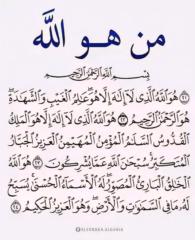 من هو الله
بِسْمِ اللَّهِ الرَّحْمَٰنِ الرَّحِيمِ
هُوَ اللَّهُ الَّذِي لَا إِلَٰهَ إِلَّا هُوَ عَالِمُ الْغَيْبِ وَالشَّهَادَةِ
هُوَ الرَّحْمَٰنُ الرَّحِيمُ ٢٢ هُوَ اللَّهُ الَّذِي لَا إِلَٰهَ إِلَّا هُوَ الْمَلِكُ
الْقُدُّوسُ السَّلَامُ الْمُؤْمِنُ الْمُهَيْمِنُ الْعَزِيزُ الْجَبَّارُ
الْمُتَكَبِّرُ سُبْحَانَ اللَّهِ عَمَّا يُشْرِكُونَ ٢٣ هُوَ اللَّهُ
الْخَالِقُ الْبَارِئُ الْمُصَوِّرُ لَهُ الْأَسْمَاءُ الْحُسْنَىٰ يُسَبِّحُ
لَهُ مَا فِي السَّمَاوَاتِ وَالْأَرْضِ وَهُوَ الْعَزِيزُ الْحَكِيمُ ٢٤